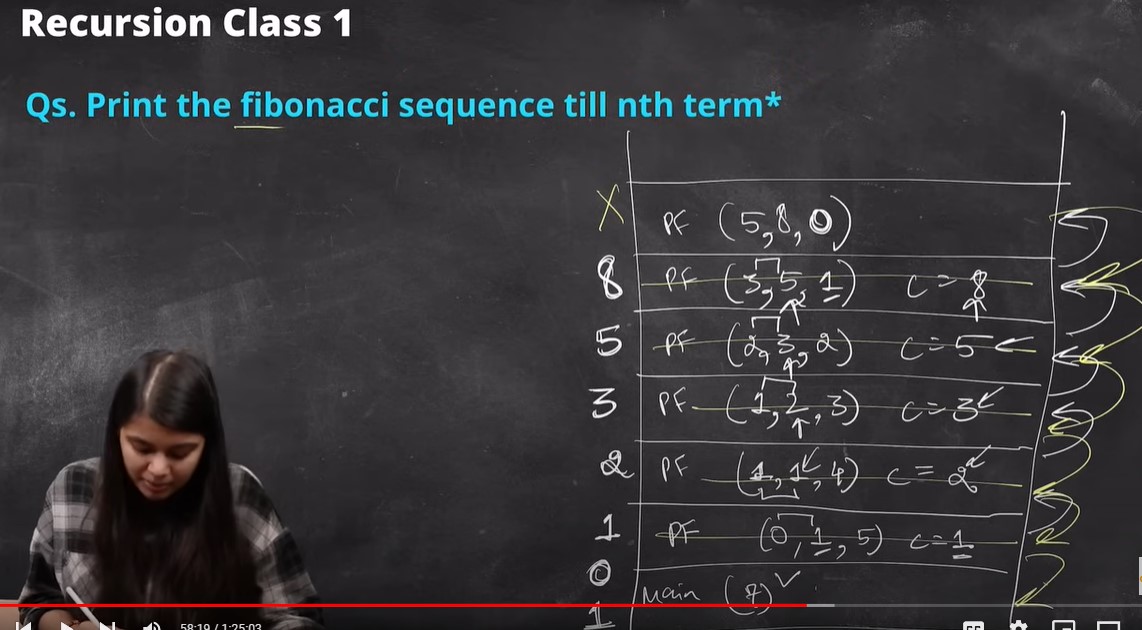 Recursion Class 1
Qs. Print the fibonacci sequence till nth term*
X PF (5,8,0)
8 PF (3,5,1) c=8
5 PF (2,3,2) c=5
3 PF (1,2,3) c=3
2 PF (1,1,4) c=2
1 PF (0,1,5) c=1
0 Main (7)
1
58:19 / 1:25:03